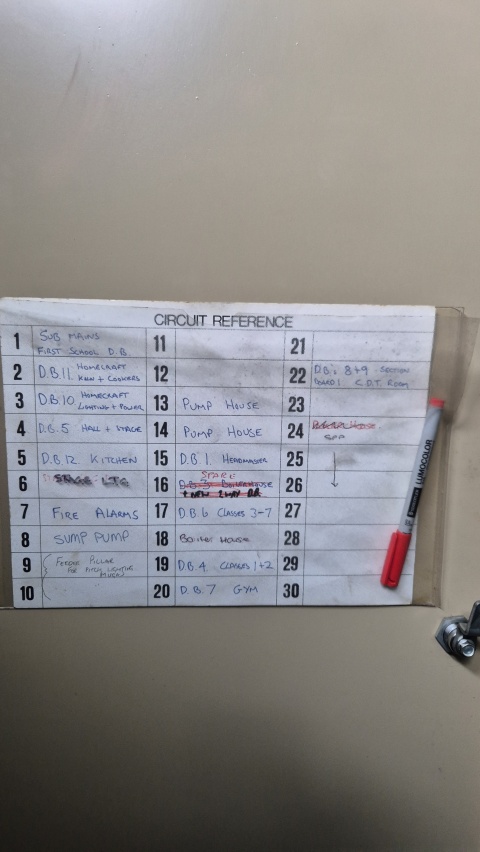 CIRCUIT REFERENCE
1 SUB MAINS
FIRST SCHOOL D.B.
2 D.B.11. HOMECRAFT
KILN + COOKERS
3 D.B.10. HOMECRAFT
LIGHTING + POWER
4 D.B.5 HALL + STAGE
5 D.B.12. KITCHEN
6 STAGE LTG
7 FIRE ALARMS
8 SUMP PUMP
9 FEEDER PILLAR
FOR PITCH LIGHTING
10
11
12
13 PUMP HOUSE
14 PUMP HOUSE
15 D.B.1 HEADMASTER
SPARE
16 D.B.3 BOILERHOUSE
+ NEW 2 WAY D.B.
17 D.B.6 CLASSES 3-7
18 BOILER HOUSE
19 D.B.4. CLASSES 1+2
20 D.B.7 GYM
21
22 D.B's 8+9. SECTION
BOARD 1 C.D.T. ROOM
23
24
25
26
27
28
29
30
STAEDTLER LUMOCOLOR